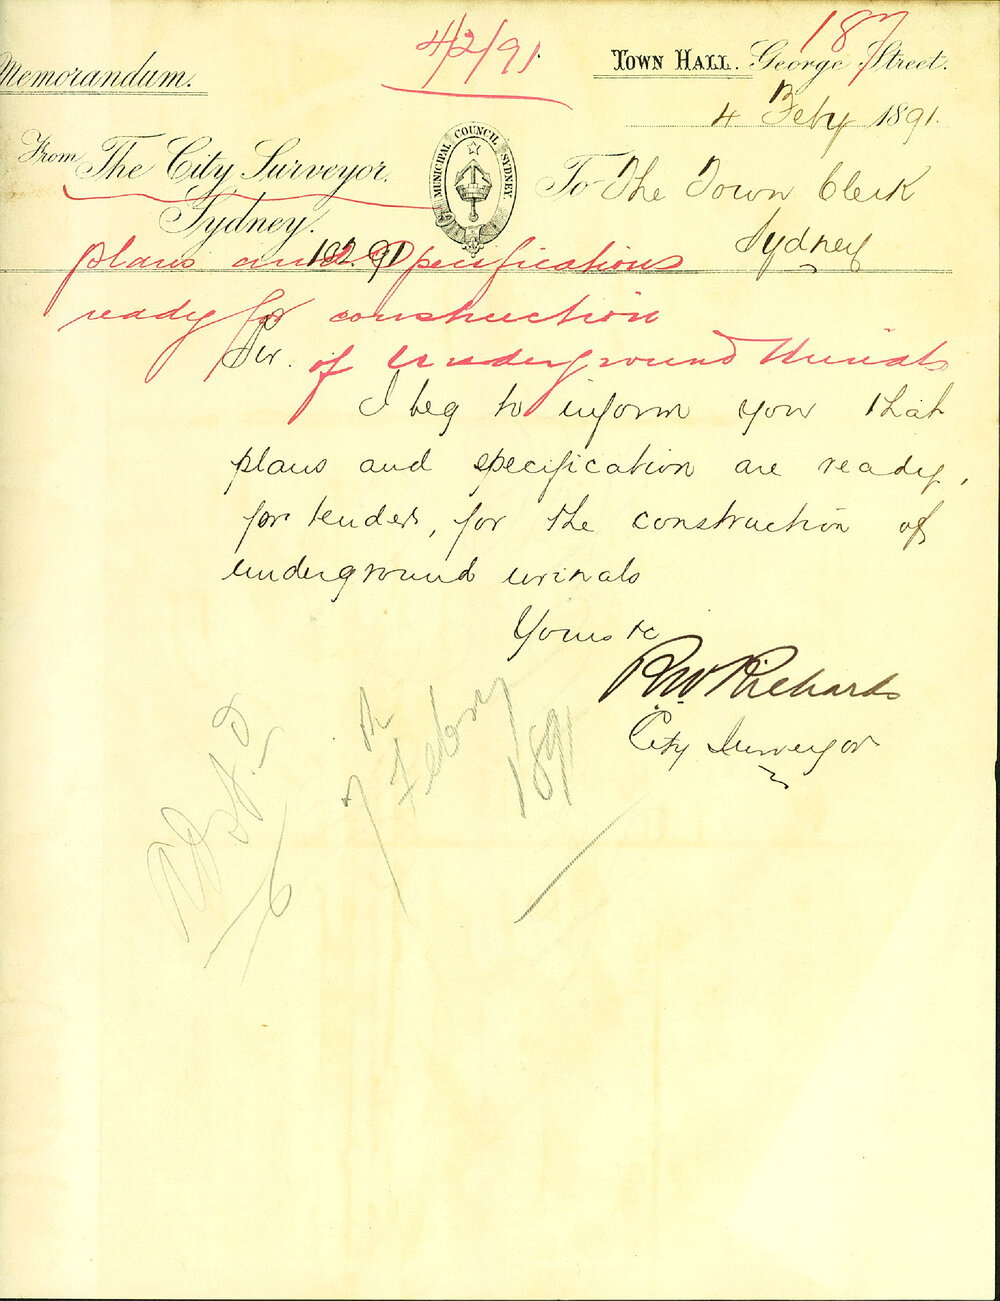 4/2/91
187
Memorandum.
TOWN HALL. George Street.
4 Feby 1891.
From The City Surveyor,
Sydney.
MUNICIPAL COUNCIL SYDNEY.
To The Town Clerk
Sydney
plans and specifications
ready for construction
of Underground Urinals
182.91
Sir.
I beg to inform you that
plans and specification are ready,
for tenders, for the construction of
underground urinals
Yours &c
R W Richards
City Surveyor
7 Febry
1891